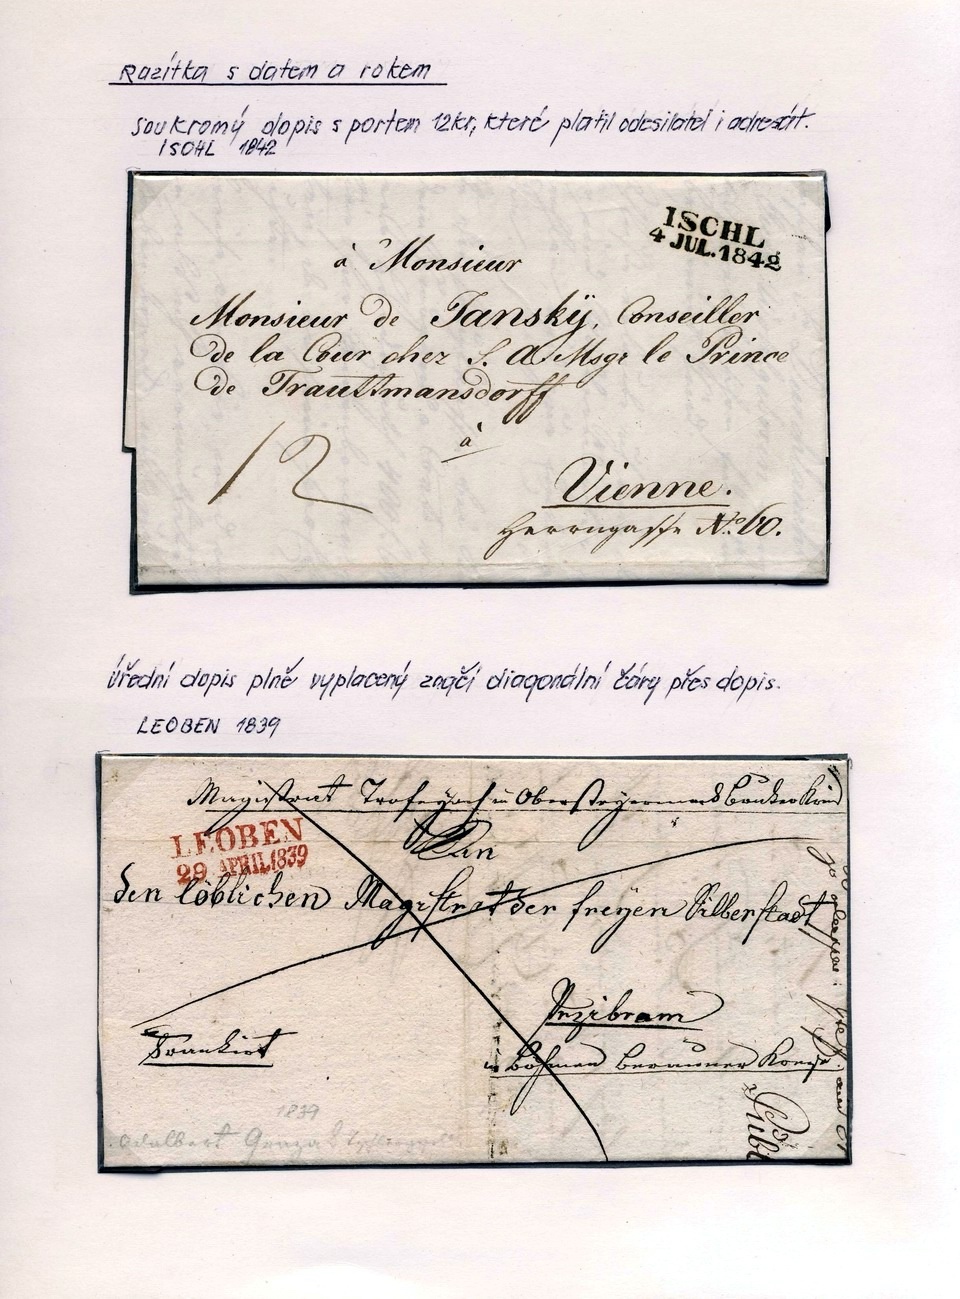 Razítka s datem a rokem
Soukromý dopis s portem 12kr, které platil odesílatel i adresát.
ISCHL 1842
ISCHL
4 JUL. 1842
à Monsieur
Monsieur de Janskÿ, Conseiller
de la Cour chez S. A. Msgr le Prince
de Trauttmansdorff
12
à
Vienne.
Herrngasse No. 60.
Úřední dopis plně vyplacený značí diagonální čáry přes dopis.
LEOBEN 1839
Magistrat Trofeyach in Obersteyermark Brucker Kreis
LEOBEN
29 APRIL 1839
An
den löblichen Magistrat der freyen Silberstadt
Przibram
Frankirt
in Böhmen Berauner Kreise
1839
Adalbert